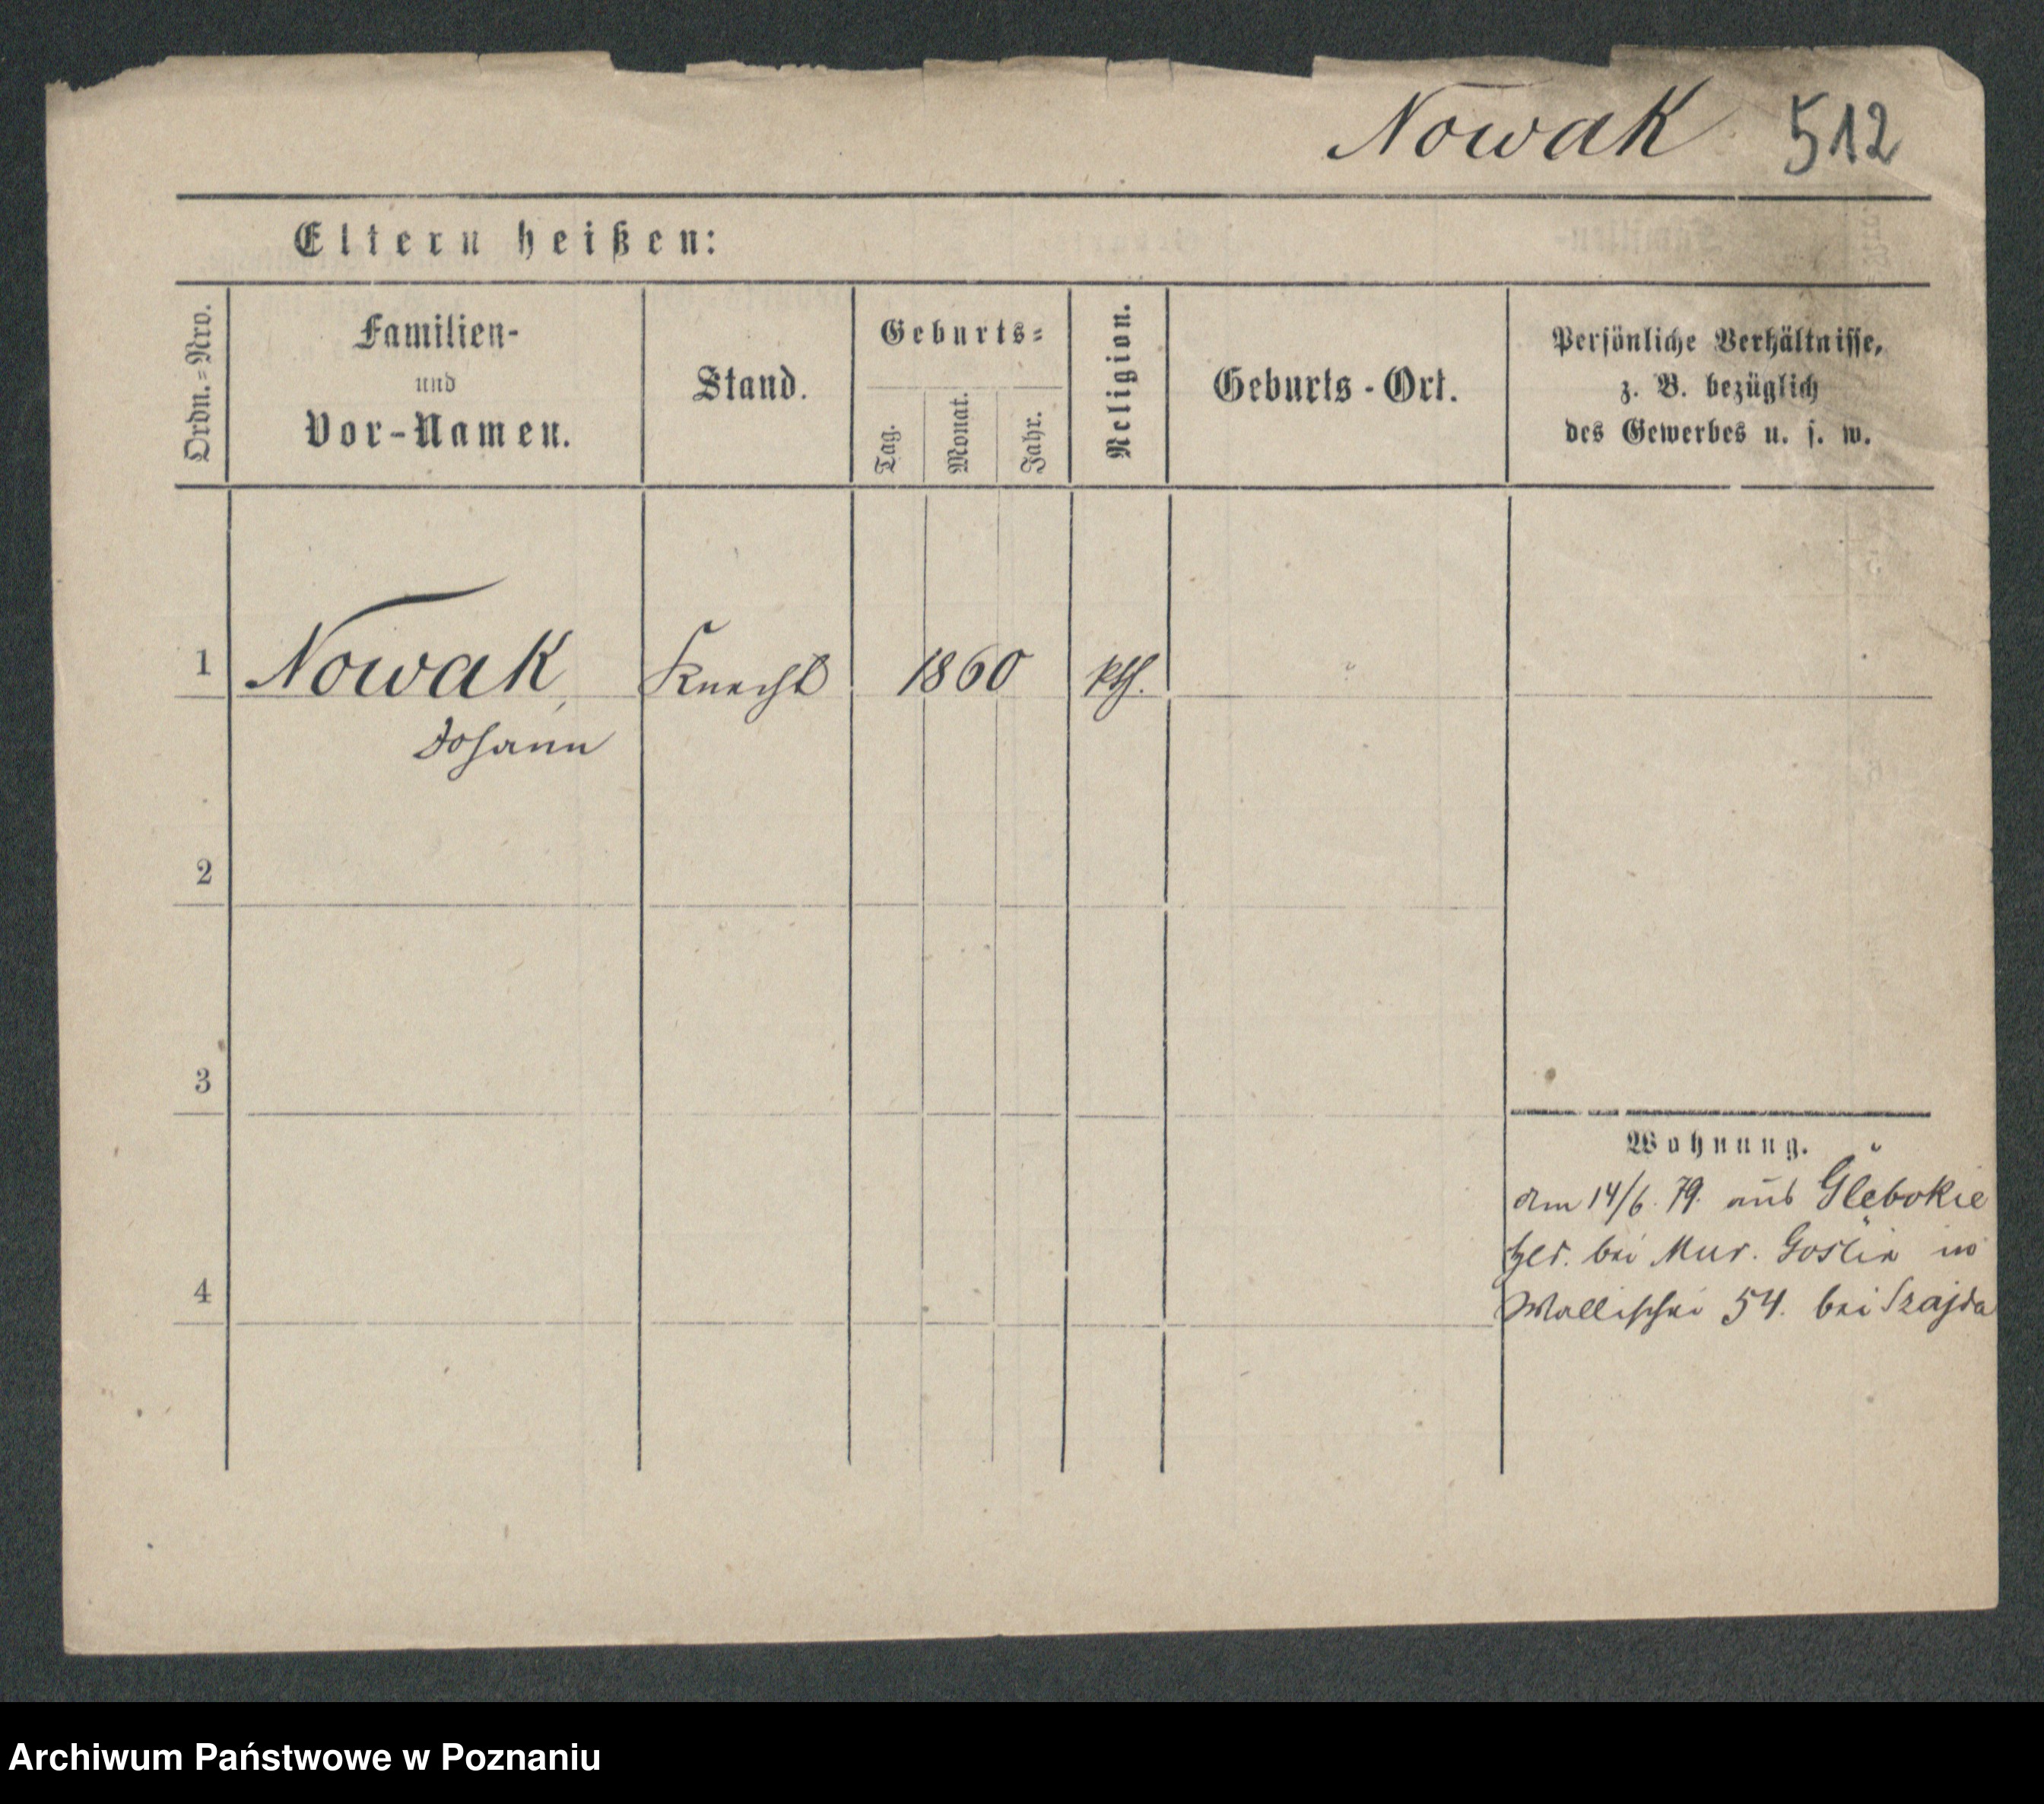 Nowak 512
Eltern heißen:
Ordn.=Nro.
Familien-
und
Vor-Namen.
Stand.
Geburts=
Tag.
Monat.
Jahr.
Religion.
Geburts-Ort.
Persönliche Verhältnisse,
z. B. bezüglich
des Gewerbes u. s. w.
1 Nowak, Knecht 1860 kth.
Johann
2
3
Wohnung.
am 14/6. 79. aus Glębokie
bei Mur. Goslin
4
Wallischei 54. bei Szajda
Archiwum Państwowe w Poznaniu